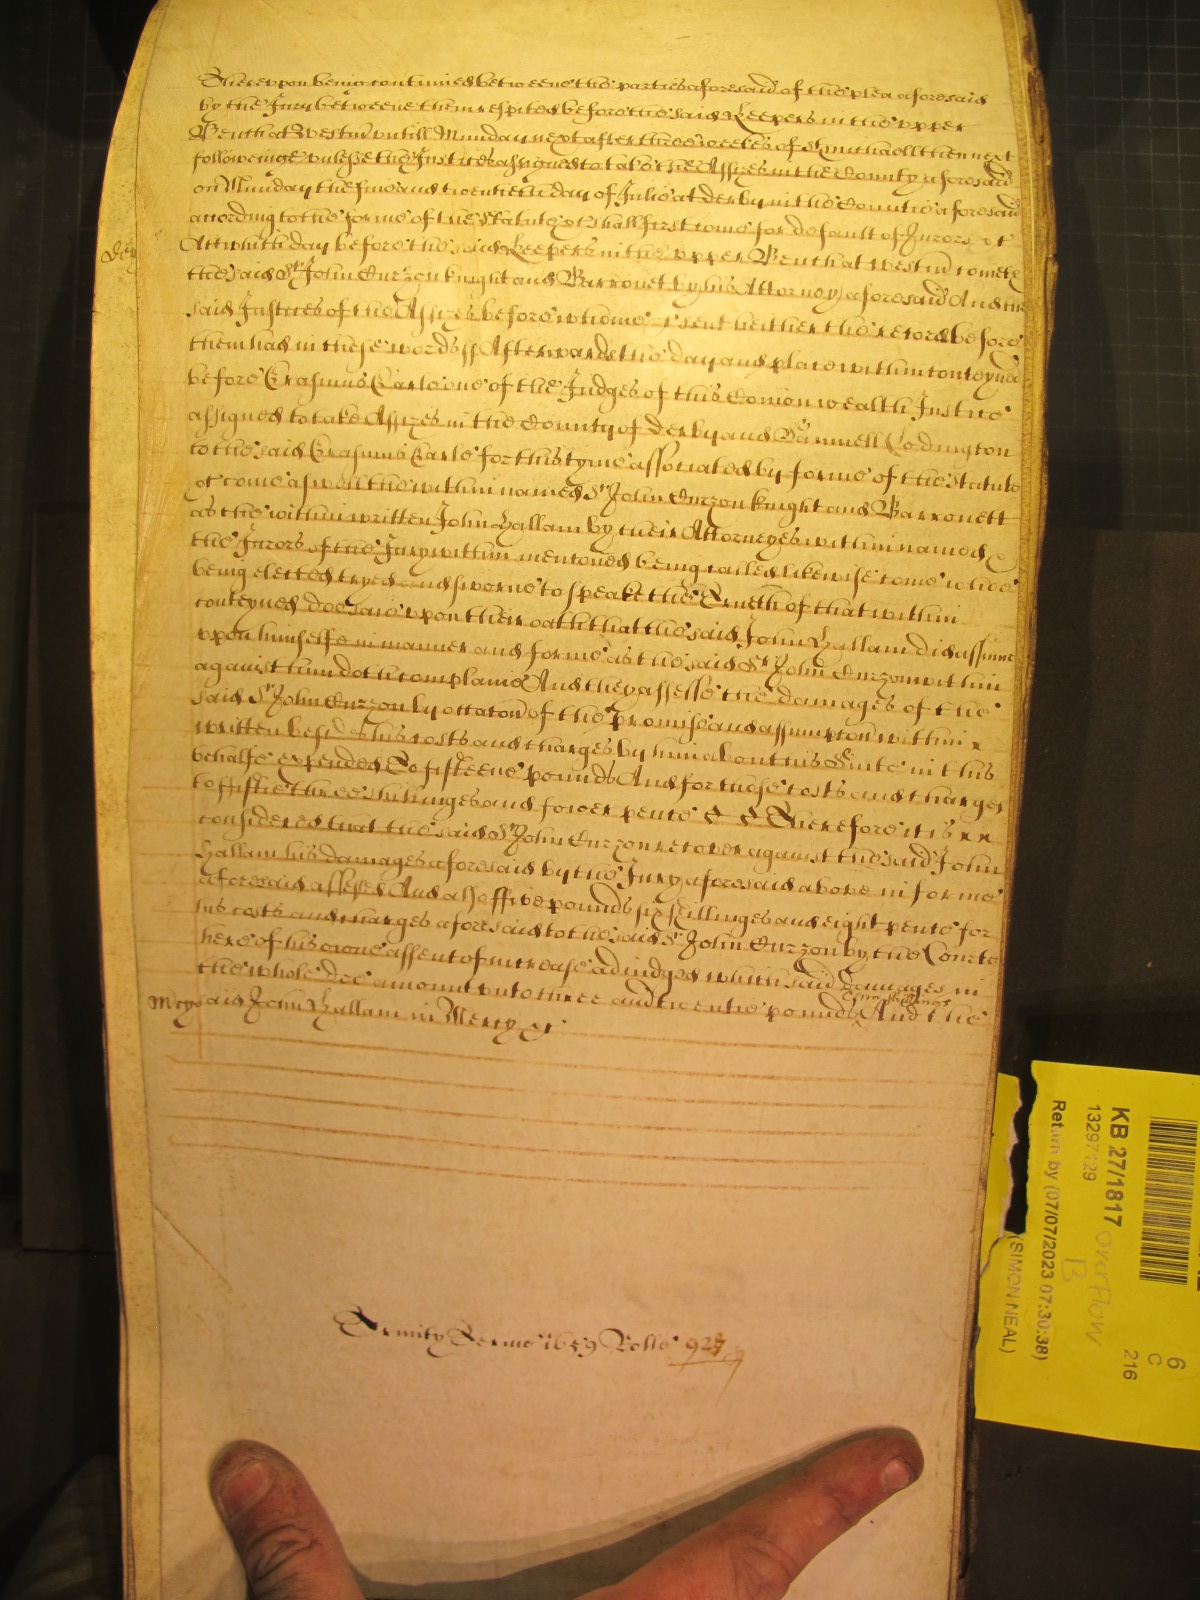 Thereupon being continued betweene the parties aforesaid of the plea aforesaid
by the Jury betweene them respited before the said Keepers in the upper
Bench at Westm̃ untill Munday next after three weekes of St Michaell then next
followeinge unlesse the Justices assigned to take the Assizes in the County aforesaid
on Munday the five and twentieth day of Julie at derby in the Countie aforesaid
according to the forme of the Statute &c shall first come for default of Jurors &c
Att which day before the said Keepers in the upper Bench at westm̃ cometh
the said Sr John Curzon knight and Barronet by his Attorney aforesaid And the
said Justices of the Assizes before whome &c sent hither the record before
them had in these words ss Afterwards the day and place within conteyned
before Erasmus Earle one of the Judges of this Comon wealth Justice
assigned to take Assizes in the County of derby and Samuell Codington
to the said Erasmus Earle for this tyme associated by forme of the Statute
&c come aswell the within named Sr John Curzon knight and Barronett
as the within written John Hallam by their Attorneyes within named &
the Jurors of the Jury within mentoned being called likewise come whoe
being elected tryed and sworne to speake the Trueth of that within
conteyned doe saie upon their oath that the said John Hallam did assume
upon himselfe in manner and forme as the said Sr John Curzon within
against him doth complaine And they assesse the damages of the
said Sr John Curzon by occaton of the promise and assumpton within
written besides his costs and charges by him about his Suite in this
behalfe expended To fifteene pounds And for those costs and charges
to fiftie three shillinges and fower pence & & Therefore it is
considered that the said Sr John Curzon recover against the said John
Hallam his damages aforesaid by the Jury aforesaid above in forme
aforesaid assessed And also ffive pounds six shillinges and eight pence for
his costs and charges aforesaid to the said Sr John Curzon by the Courte
here of his owne assent of increase adiudged which said damages in
the whole doe amount unto three and twentie pounds And the
Mcy said John Hallam in Mercy &c
Trinity Terme 1659 Rolle 927
KB 27/1817 overflow
B
Return by (07/07/2023 07:30:38)
(SIMON NEAL)
6
C
216